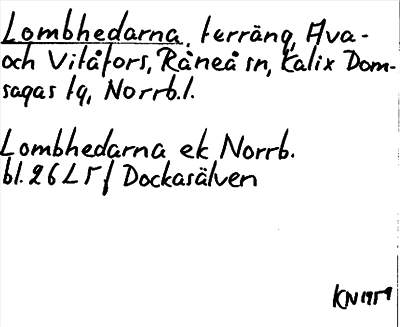 Lombhedarna, terräng, Ava-
och Vitåfors, Råneå sn, Kalix Dom-
sagas tg, Norrb.l.
Lombhedarna ek Norrb.
bl. 26L 5 f Dockasälven
KN 1959